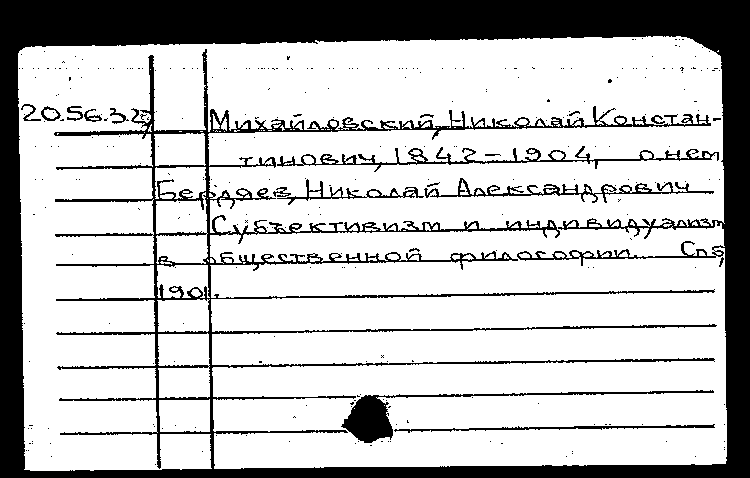 20.56.3.27 Михайловский, Николай Констан-
тинович, 1842-1904, о нем
Бердяев, Николай Александрович
Субъективизм и индивидуализм
в общественной философии. Спб,
1901.